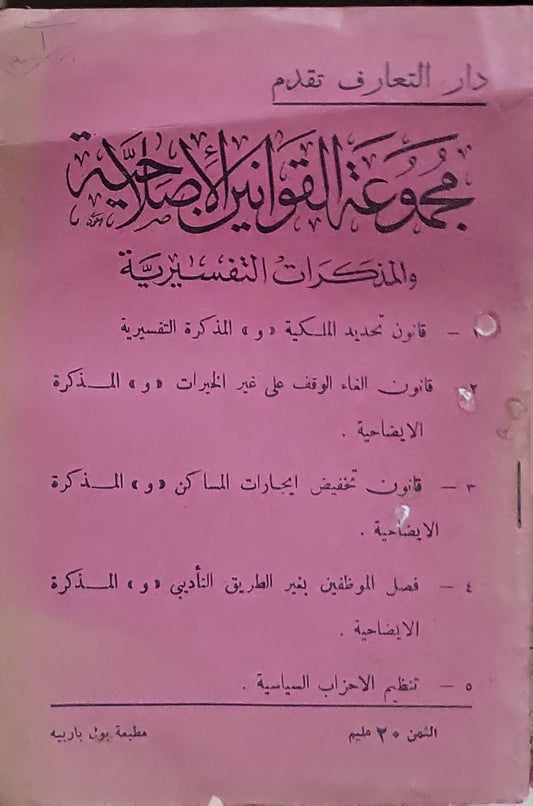 دار التعارف تقدم
مجموعة القوانين الإصلاحية
والمذكرات التفسيرية
١ — قانون تحديد الملكية «و» المذكرة التفسيرية
٢ — قانون الغاء الوقف على غير الخيرات «و» المــذكرة
الايضاحية .
٣ — قانون تخفيض ايجارات المساكن «و» المــذكرة
الايضاحية .
٤ — فصل الموظفين بغير الطريق التأديبي «و» المــذكرة
الايضاحية .
٥ — تنظيم الاحزاب السياسية .
الثمن ٢٠ مليم
مطبعة بول باربيه